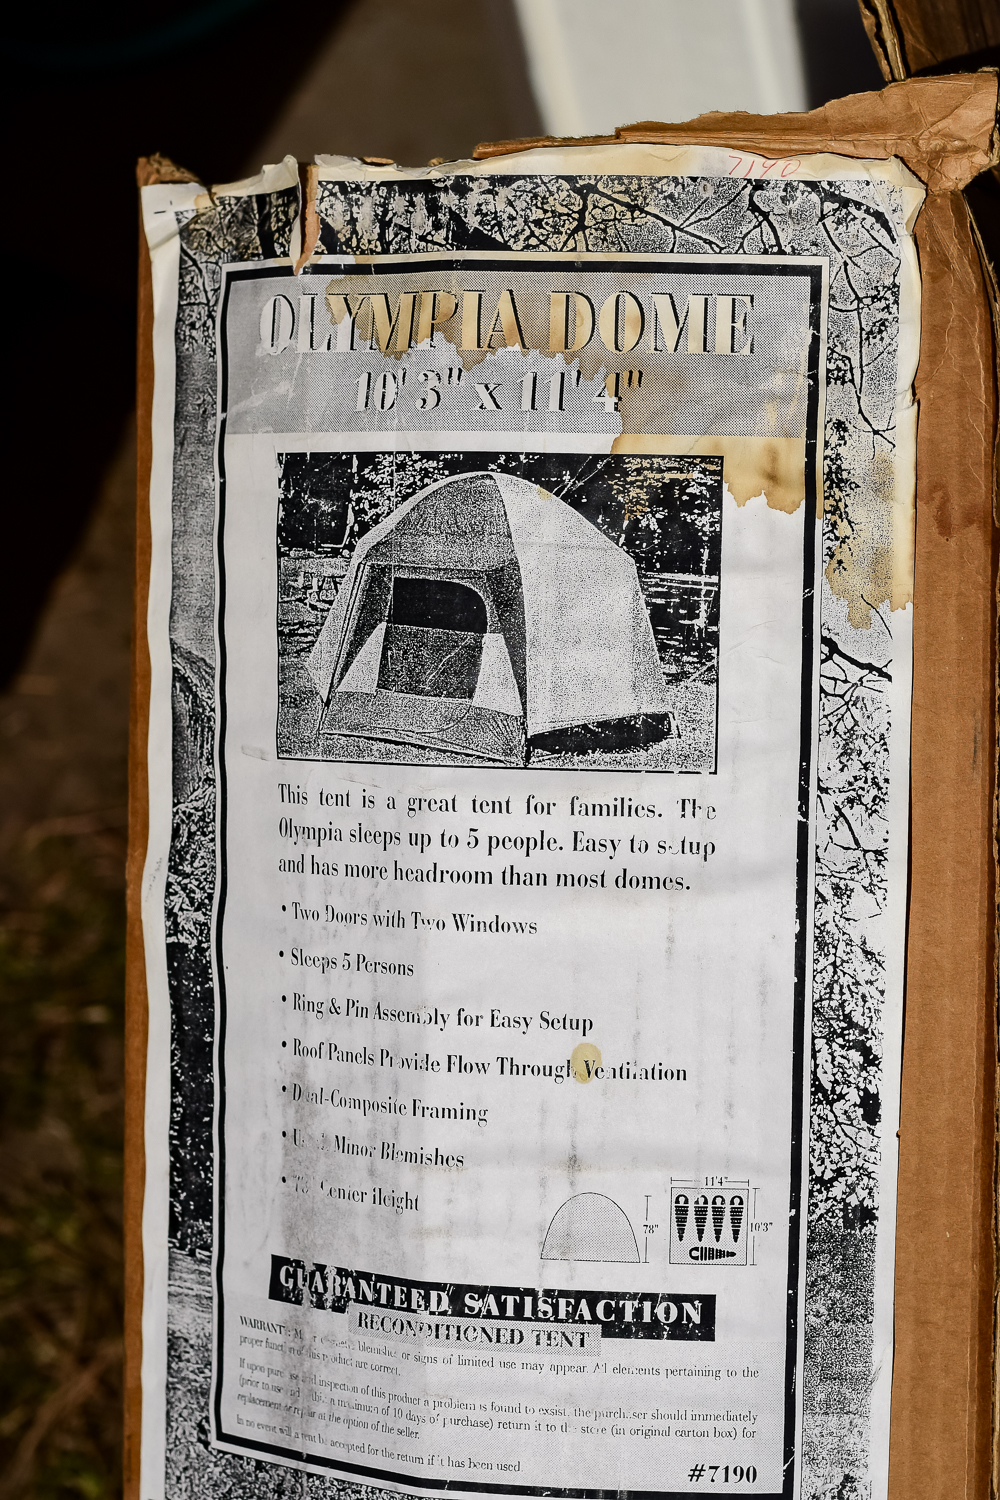 7190
OLYMPIA DOME
10' 3" x 11' 4"
This tent is a great tent for families. The
Olympia sleeps up to 5 people. Easy to setup
and has more headroom than most domes.
• Two Doors with Two Windows
• Sleeps 5 Persons
• Ring & Pin Assembly for Easy Setup
• Roof Panels Provide Flow Through Ventilation
• Dual-Composite Framing
• Minor Blemishes
• 78" Center Height
11'4"
78"
10'3"
GUARANTEED SATISFACTION
RECONDITIONED TENT
WARRANTY: blemishes or signs of limited use may appear. All elements pertaining to the
proper function of this product are correct.
If upon purchase and inspection of this product a problem is found to exsist, the purchaser should immediately
(prior to use and within a maximum of 10 days of purchase) return it to the store (in original carton box) for
replacement or repair at the option of the seller.
In no event will a tent be accepted for the return if it has been used.
#7190